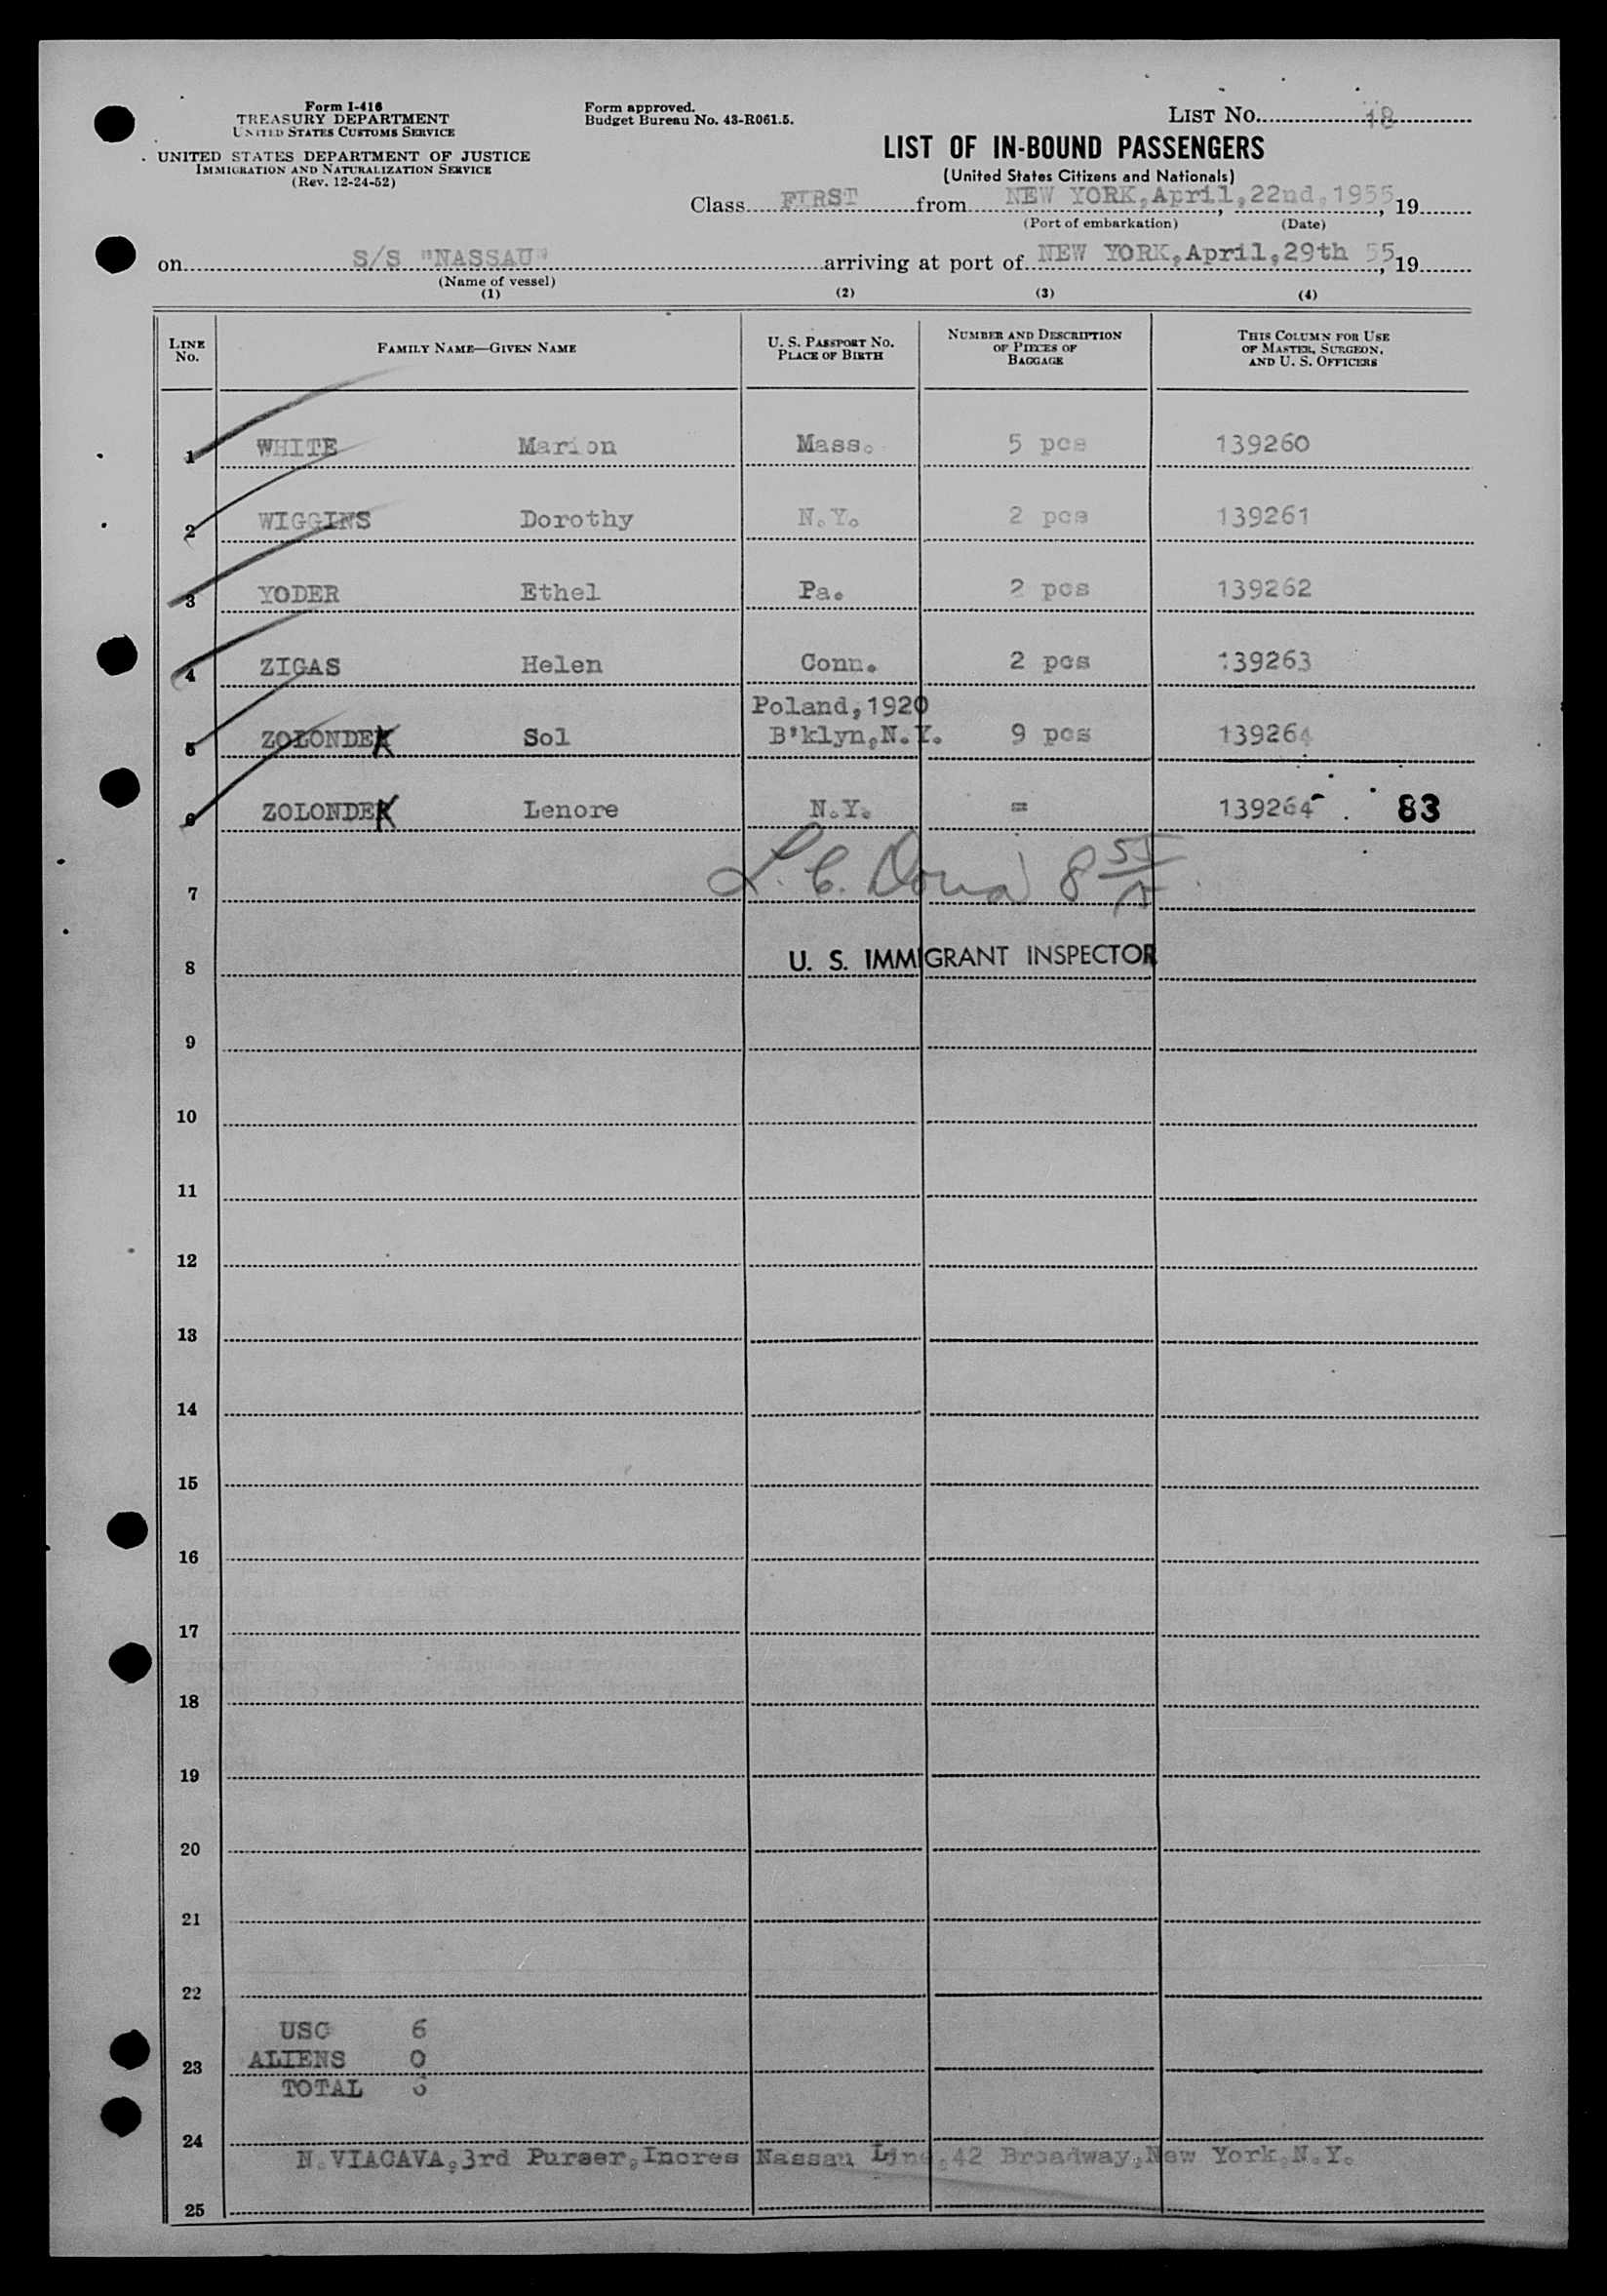 Form I-416
TREASURY DEPARTMENT
UNITED STATES CUSTOMS SERVICE
UNITED STATES DEPARTMENT OF JUSTICE
IMMIGRATION AND NATURALIZATION SERVICE
(Rev. 12-24-52)
Form approved.
Budget Bureau No. 43-R061.5.
LIST No. 18
LIST OF IN-BOUND PASSENGERS
(United States Citizens and Nationals)
Class FIRST from NEW YORK, April, 22nd, 1955, 19
(Port of embarkation) (Date)
on S/S "NASSAU" arriving at port of NEW YORK, April, 29th 55, 19
(Name of vessel)
(1) (2) (3) (4)
LINE No. FAMILY NAME—GIVEN NAME U. S. PASSPORT No. PLACE OF BIRTH NUMBER AND DESCRIPTION OF PIECES OF BAGGAGE THIS COLUMN FOR USE OF MASTER, SURGEON, AND U. S. OFFICERS
1 WHITE Marion Mass. 5 pcs 139260
2 WIGGINS Dorothy N.Y. 2 pcs 139261
3 YODER Ethel Pa. 2 pcs 139262
4 ZIGAS Helen Conn. 2 pcs 139263
Poland, 1920
5 ZOLONDEK Sol B'klyn, N.Y. 9 pcs 139264
6 ZOLONDEK Lenore N.Y. = 139264 83
7 L. C. 8 55
8 U. S. IMMIGRANT INSPECTOR
9
10
11
12
13
14
15
16
17
18
19
20
21
22
USC 6
23 ALIENS 0
TOTAL 6
24
N. VIACAVA, 3rd Purser, Incres Nassau Line, 42 Broadway, New York, N.Y.
25